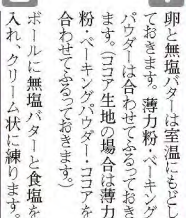 卵と無塩バターは室温にもどし
ておきます。薄力粉・ベーキング
パウダーは合わせてふるっておき
ます。(ココア生地の場合は薄力
粉・ベーキングパウダー・ココアを
合わせてふるっておきます。)
ボールに無塩バターと食塩を
入れ、クリーム状に練ります。